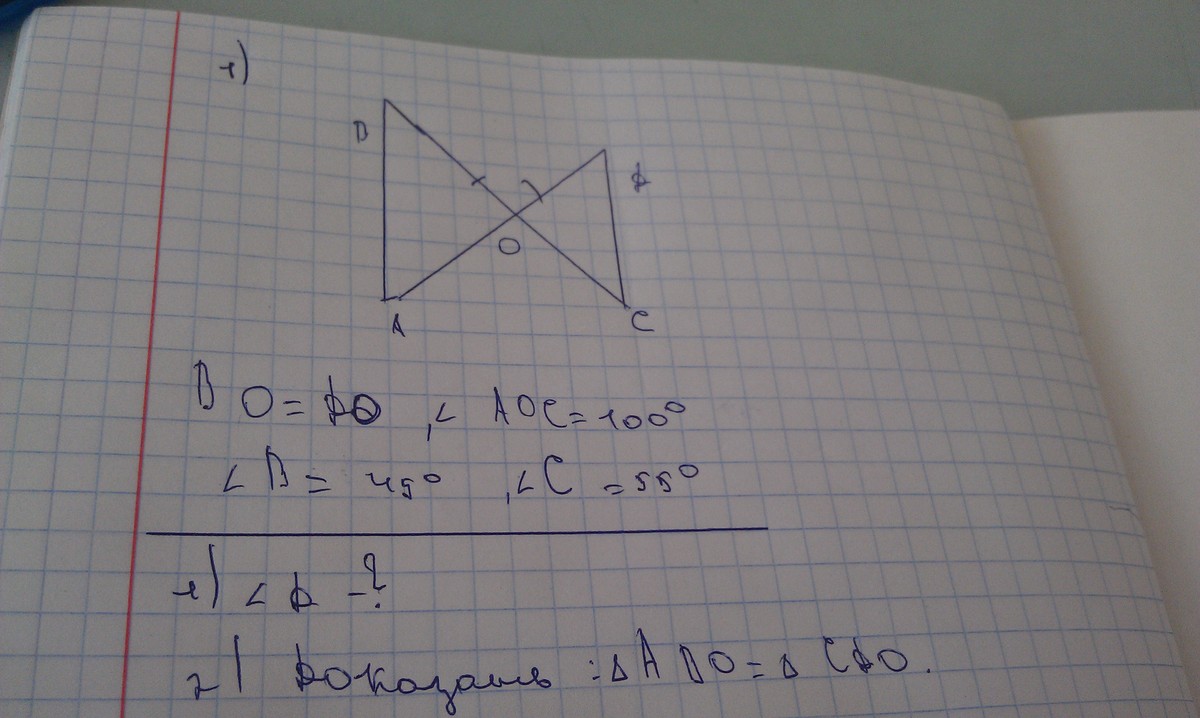 1)
B
D
O
A
C
BO = DO, ∠ AOC = 100°
∠B = 45°, ∠C = 55°
1) ∠D - ?
2) Доказать : Δ ABO = Δ CDO.